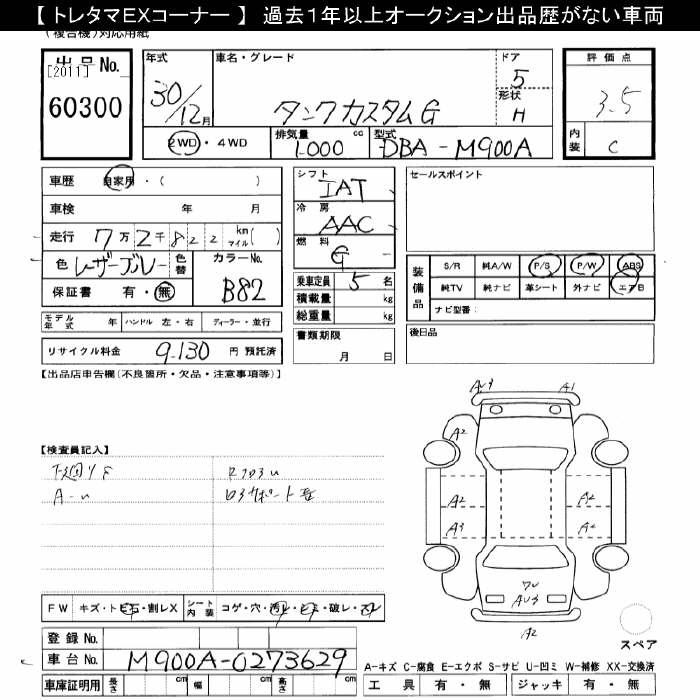 【 トレタマEXコーナー 】 過去1年以上オークション出品歴がない車両
(複合機)対応用紙
出品 No. [2011] 60300
年式 30/12月
車名・グレード タンクカスタムG
ドア 5
形状 H
評価点 3.5
内装 C
2WD・4WD
排気量 1000 cc
型式 DBA-M900A
車歴 自家用・( )
車検 年 月
走行 7万2千822 km マイル( )
色 レーザーブルー 色替
カラーNo. B82
保証書 有・無
シフト IAT
冷房 AAC
燃料 G
乗車定員 5名
積載量 kg
総重量 kg
セールスポイント
装備品 S/R 純A/W P/S P/W ABS
純TV 純ナビ 革シート 外ナビ エアB
ナビ型番:
モデル年式 年 ハンドル 左・右 ディーラー・並行
書類期限 月 日
後日品
リサイクル料金 9,130 円 預託済
【出品店申告欄(不良箇所・欠品・注意事項等)】
AU3 A1
A2
【検査員記入】
下廻りS
A-u
A2 A2
A3 A2
7U
AU3
A2
FW キズ・トビ石・割レX シート内装 コゲ・穴・汚レ・シミ・破レ・スレ
登録 No.
車台 No. M900A-0273629
スペア
A-キズ C-腐食 E-エクボ S-サビ U-凹ミ W-補修 XX-交換済
車庫証明用 長さ cm 幅 cm 高さ cm
工具 有・無 ジャッキ 有・無